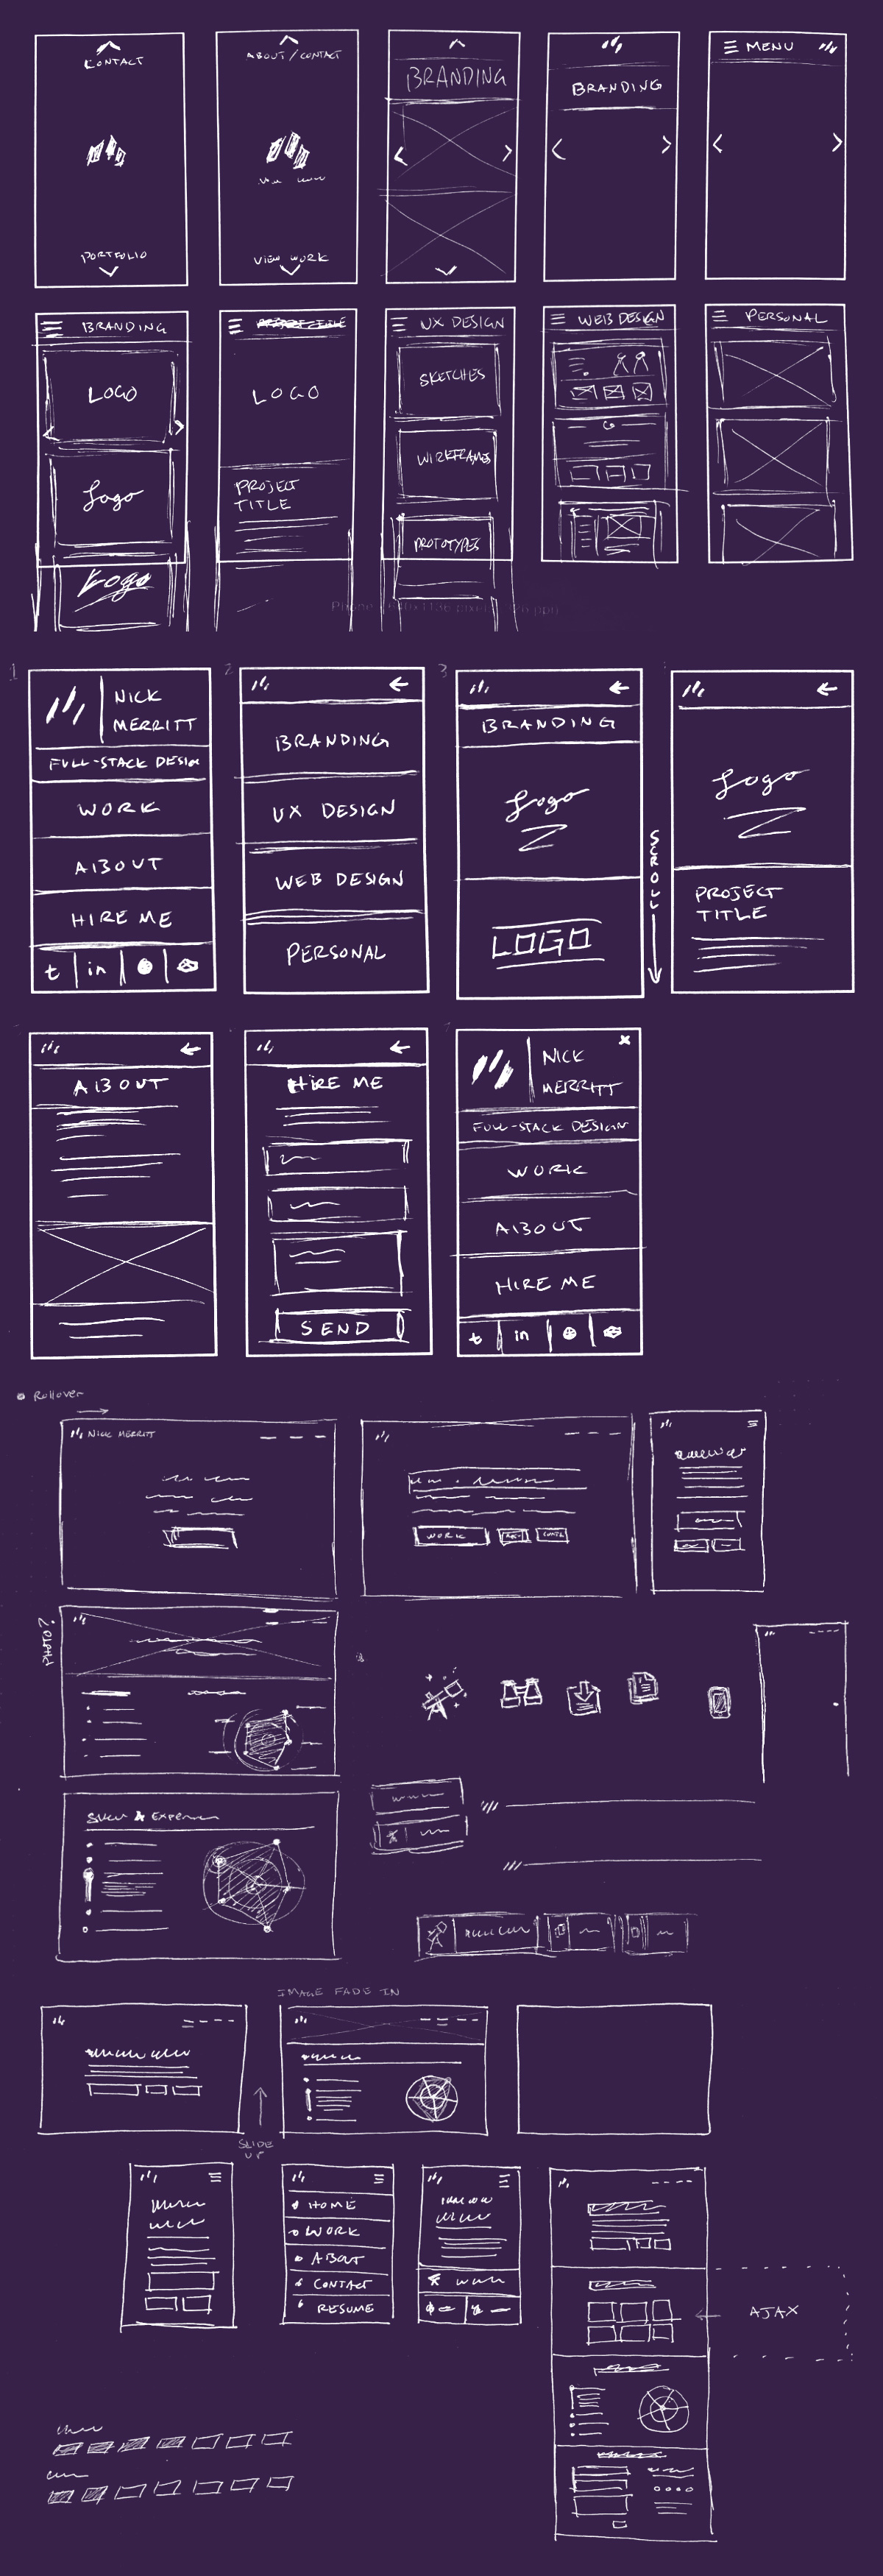 CONTACT
PORTFOLIO
ABOUT / CONTACT
VIEW WORK
BRANDING
BRANDING
MENU
BRANDING
LOGO
Logo
Logo
LOGO
PROJECT
TITLE
UX DESIGN
SKETCHES
WIREFRAMES
PROTOTYPES
WEB DESIGN
PERSONAL
1
NICK
MERRITT
FULL-STACK DESIGN
WORK
ABOUT
HIRE ME
t
in
2
BRANDING
UX DESIGN
WEB DESIGN
PERSONAL
3
BRANDING
Logo
LOGO
SCROLL
Logo
PROJECT
TITLE
ABOUT
HIRE ME
SEND
x
NICK
MERRITT
FULL-STACK DESIGN
WORK
ABOUT
HIRE ME
t
in
Rollover
NICK MERRITT
WORK
PHOTO?
IMAGE FADE IN
SLIDE
UP
HOME
WORK
ABOUT
CONTACT
RESUME
AJAX